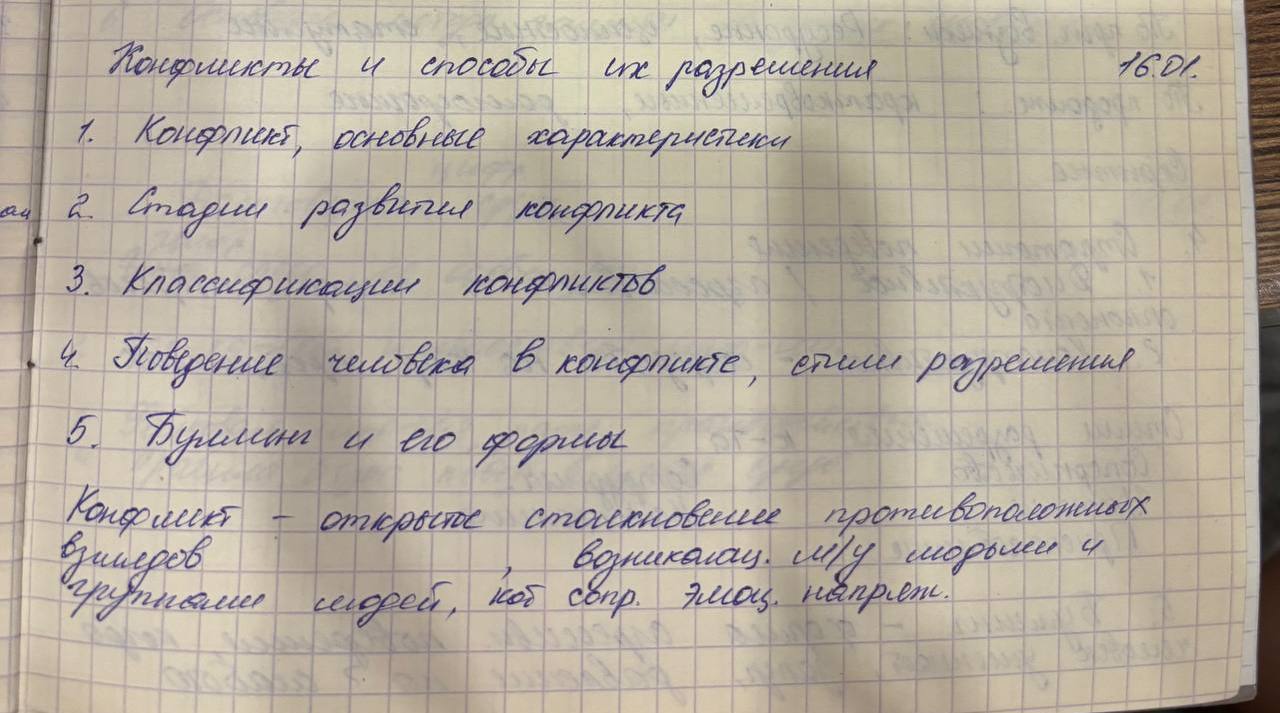 Конфликты и способы их разрешения 16.01.
1. Конфликт, основные характеристики
2. Стадии развития конфликта
3. Классификации конфликтов
4. Поведение человека в конфликте, стили разрешения
5. Буллинг и его формы
Конфликт – открытое столкновение противоположных
взглядов , возникающ. м/у людьми и
группами людей, кот сопр. эмоц. напряж.